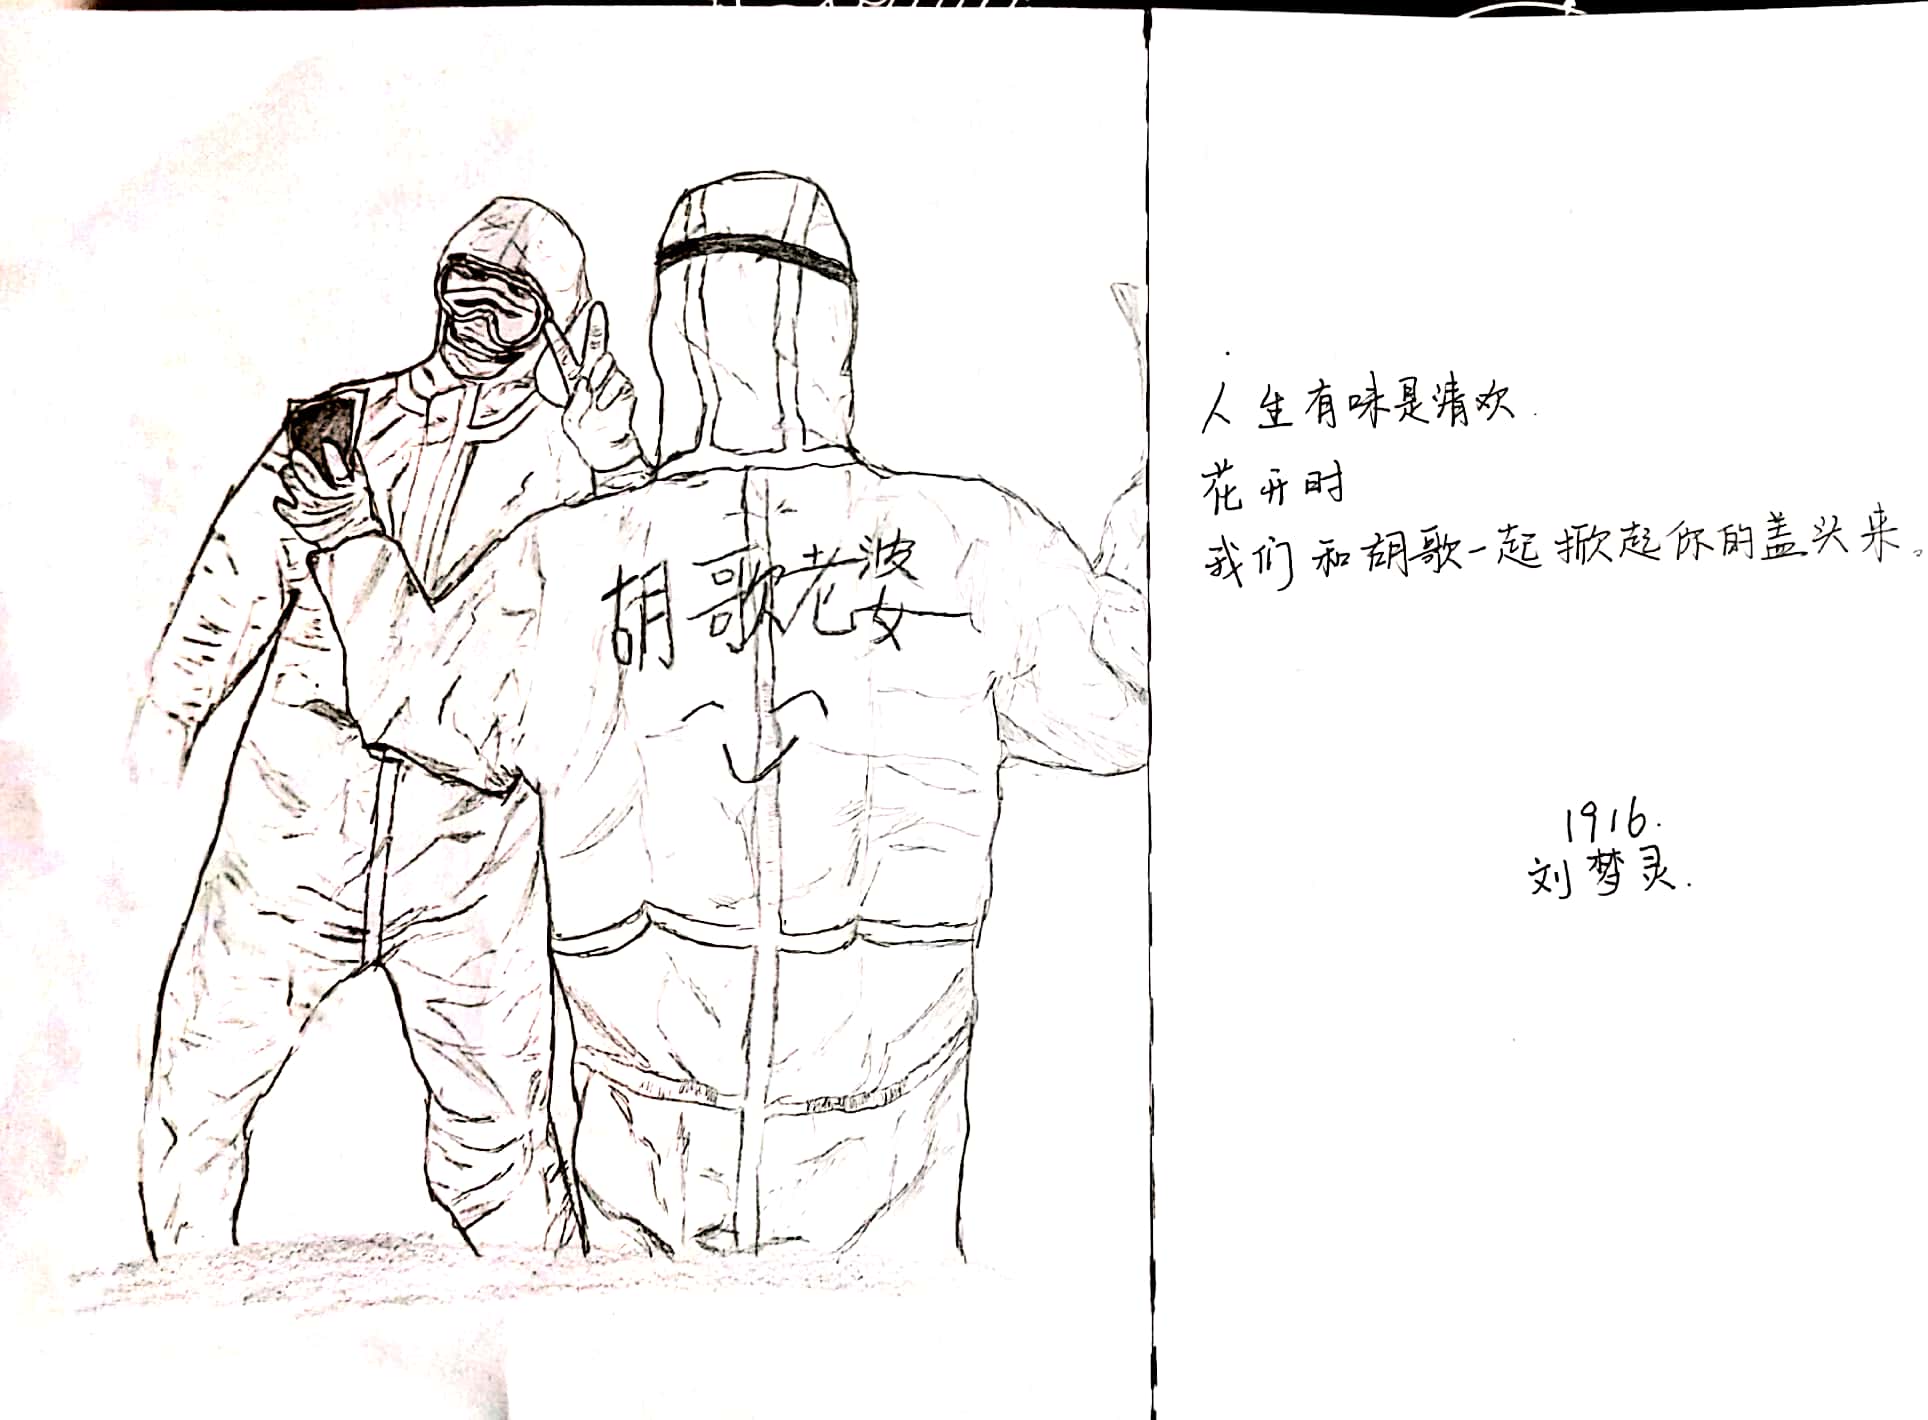 胡歌老婆
人生有味是清欢.
花开时
我们和胡歌一起掀起你的盖头来。
1916.
刘梦灵.